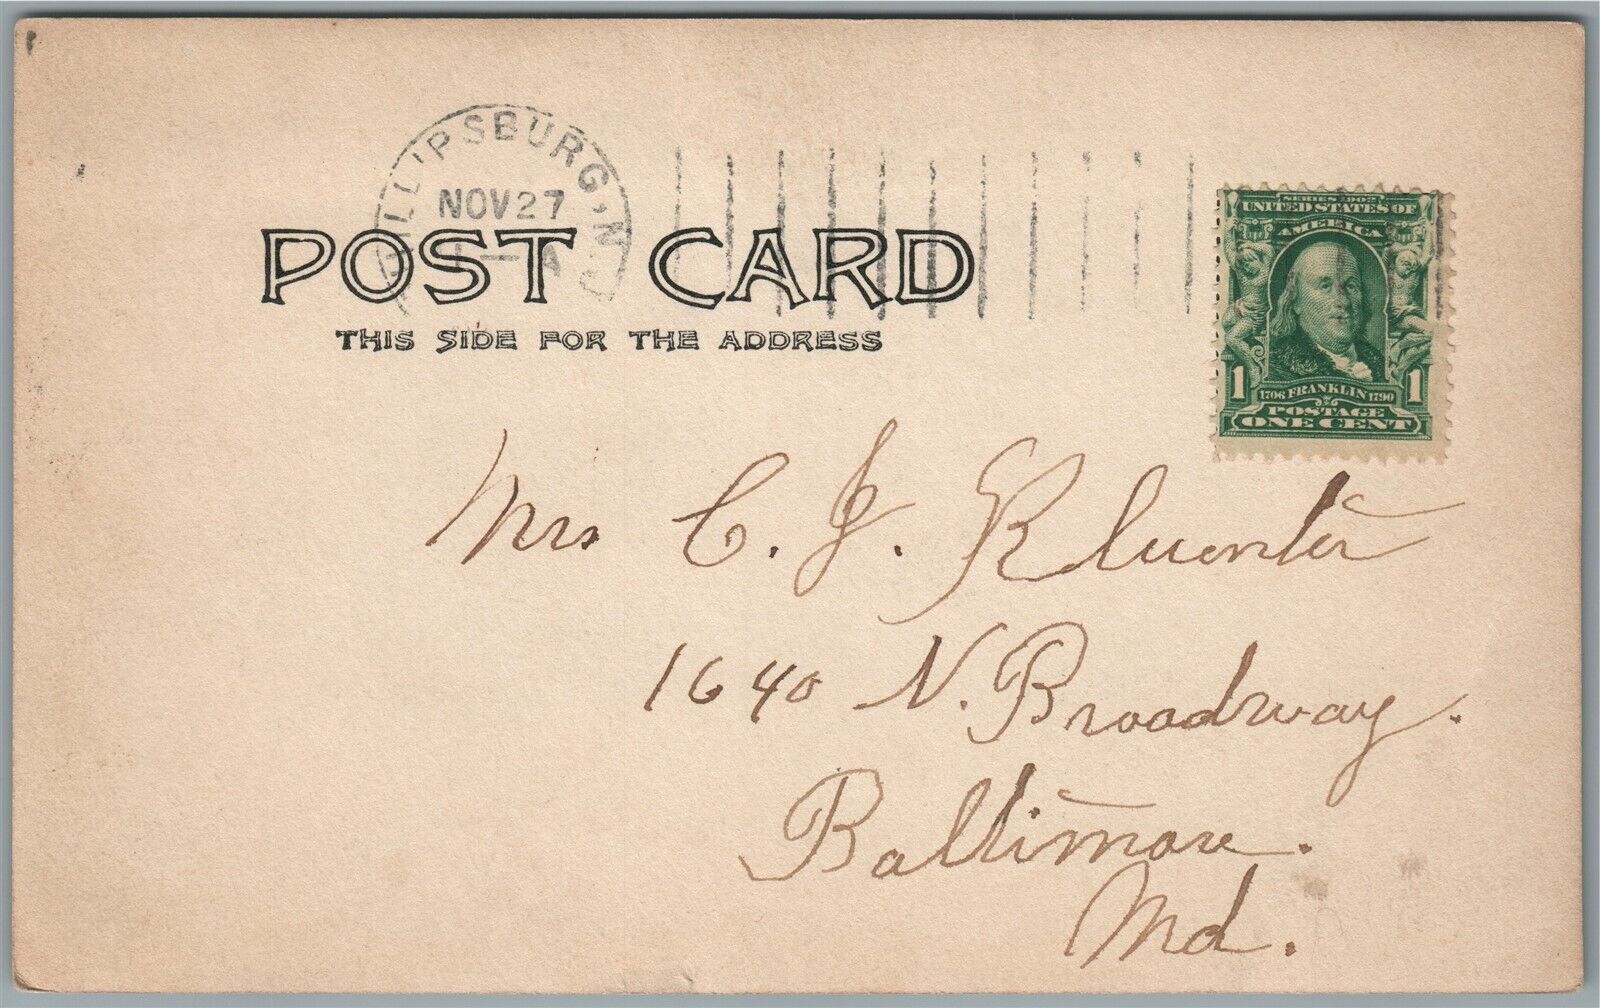 PHILLIPSBURG, N.J.
NOV 27
A
POST CARD
THIS SIDE FOR THE ADDRESS
SERIES 1902
UNITED STATES OF
AMERICA
1 1
1706 FRANKLIN 1790
POSTAGE
ONE CENT
Mrs C. J. Kluenter
1640 N. Broadway.
Baltimore.
Md.